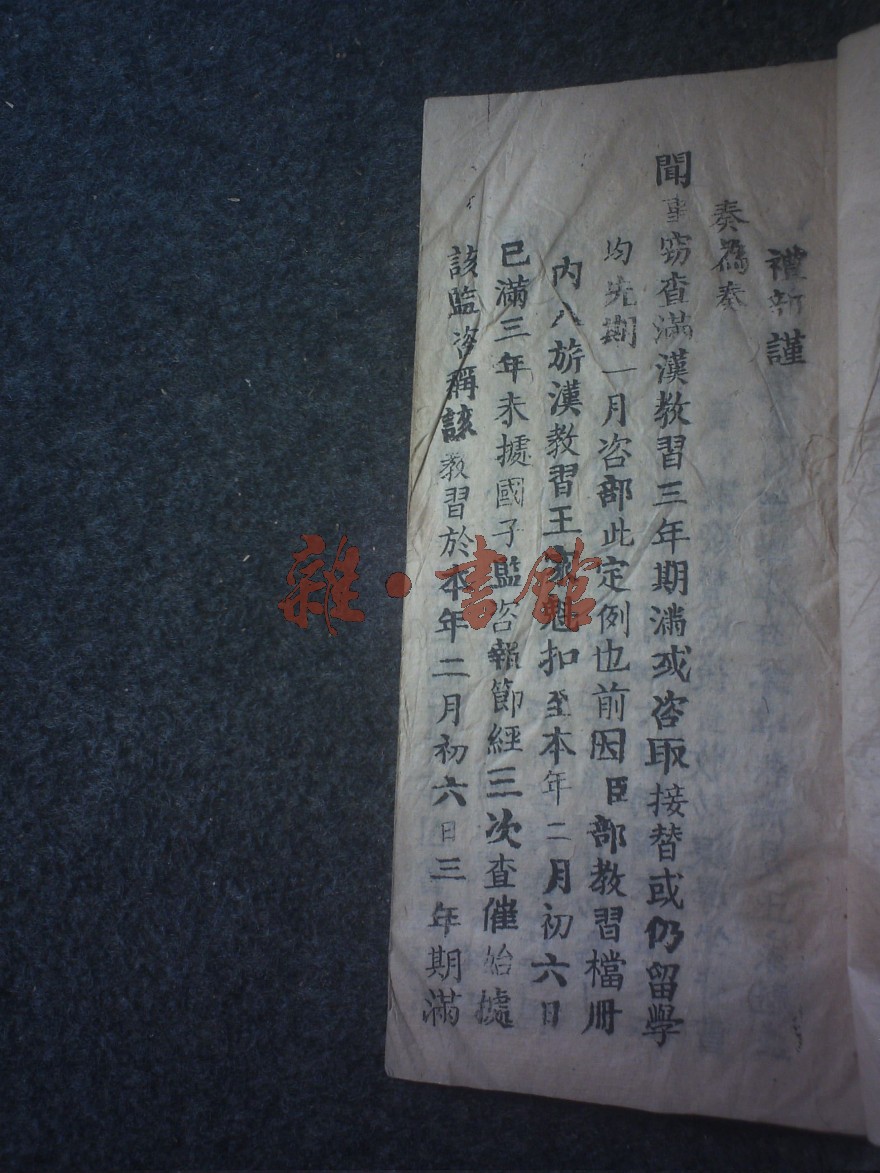 禮部謹
奏爲奏
聞事窃查滿漢教習三年期滿或咨取接替或仍留學
均先期一月咨部此定例也前因臣部教習檔冊
内八旂漢教習王魁扣至本年二月初六日
已滿三年未據國子監咨報節經三次查催始據
該監咨稱該教習於本年二月初六日三年期滿
雜·書館